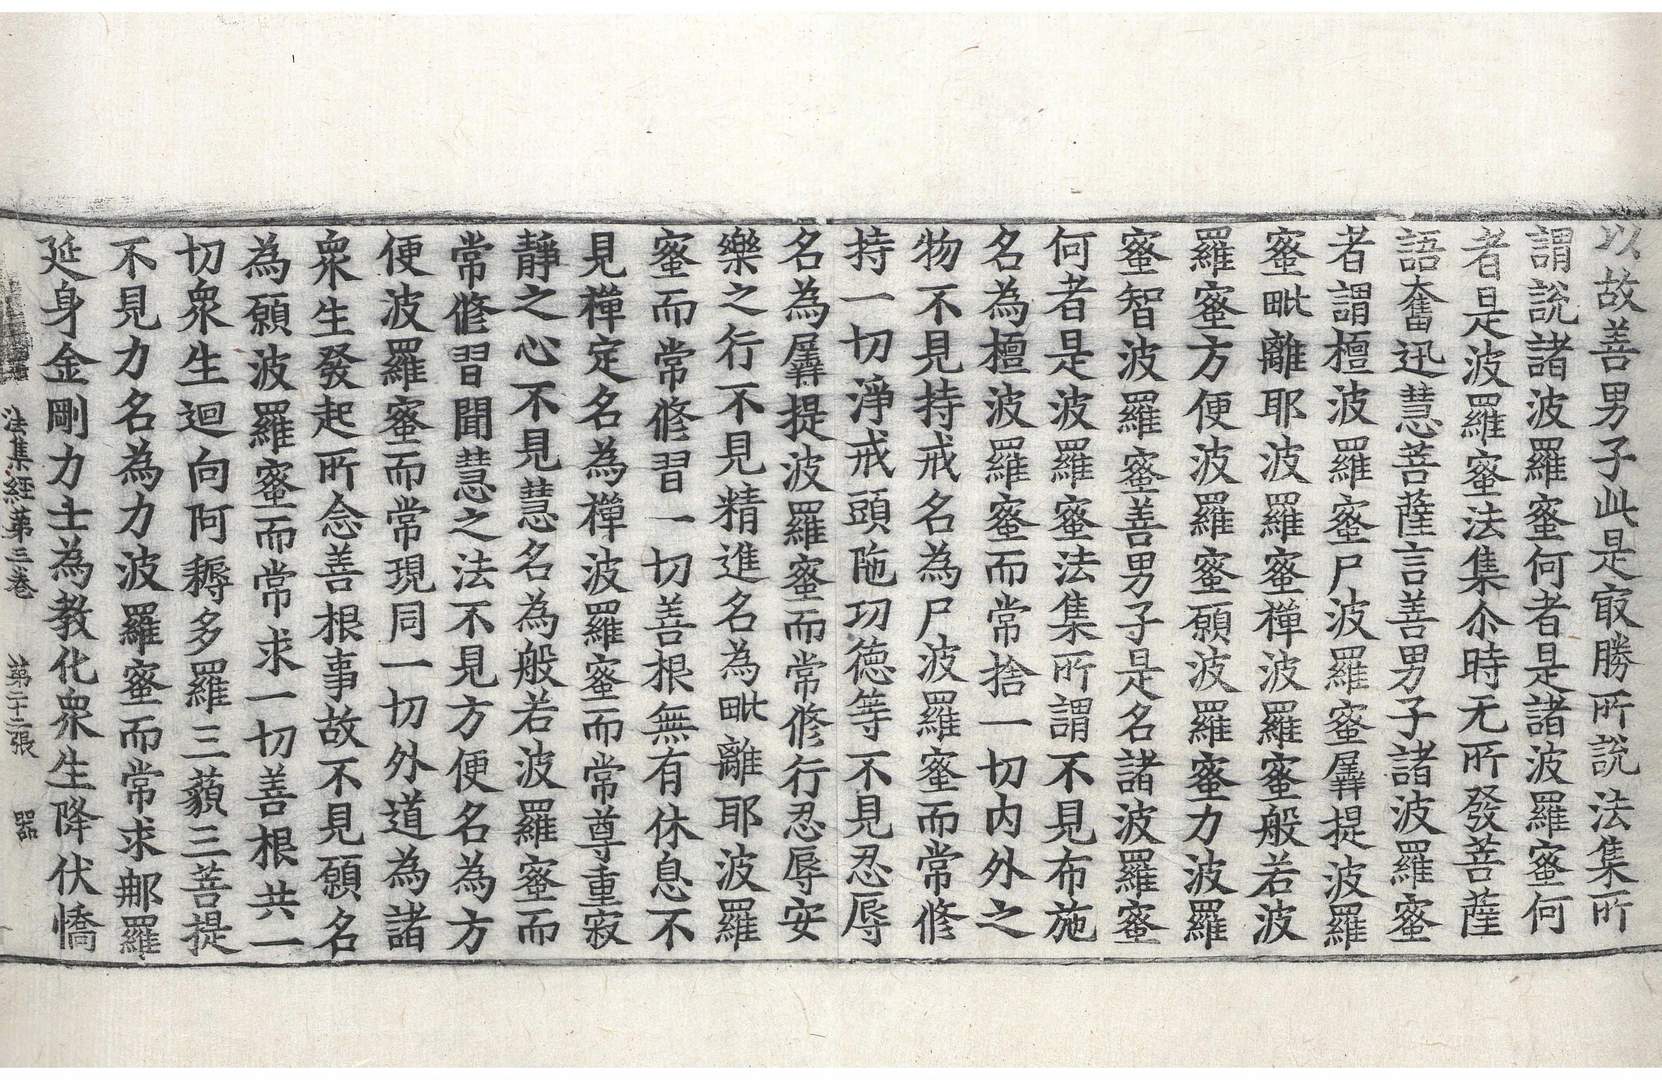 以故善男子此是㝡勝所說法集所
謂說諸波羅蜜何者是諸波羅蜜何
者是波羅蜜法集尒時无所發菩薩
語奮迅慧菩薩言善男子諸波羅蜜
者謂檀波羅蜜尸波羅蜜羼提波羅
蜜毗離耶波羅蜜禪波羅蜜般若波
羅蜜方便波羅蜜願波羅蜜力波羅
蜜智波羅蜜善男子是名諸波羅蜜
何者是波羅蜜法集所謂不見布施
名為檀波羅蜜而常捨一切內外之
物不見持戒名為尸波羅蜜而常修
持一切淨戒頭陁功德等不見忍辱
名為羼提波羅蜜而常修行忍辱安
樂之行不見精進名為毗離耶波羅
蜜而常修習一切善根無有休息不
見禪定名為禪波羅蜜而常尊重寂
靜之心不見慧名為般若波羅蜜而
常修習聞慧之法不見方便名為方
便波羅蜜而常現同一切外道為諸
衆生發起所念善根事故不見願名
為願波羅蜜而常求一切善根共一
切衆生迴向阿耨多羅三藐三菩提
不見力名為力波羅蜜而常求那羅
延身金剛力士為教化衆生降伏憍
法集經第三卷 第二十二張 器